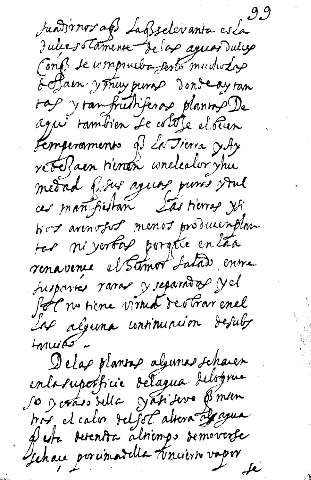 99
que se levanta es la
dulce solamente de las aguas dulces
Conq̃ se comprueba serlo mucho las
y muy puras donde ay tan
tas y tan fructiferas plantas De
aqui tambien se colije el buen
temperamento q̃ la Tierra y Ay
re tienen con el calor y hu
medad q̃ sus aguas puras y dul
ces manifiestan Las tierras y si
tios arenosos menos producen plan
tas ni yerbas porque en la a
rena vence el humor salado entre
sus partes raras y separadas y el
Sol no tiene virtud de obrar en el
las alguna continuacion de subs
tancias.
De las plantas algunas se hacen
en la superficie del agua del grue
so y craso della y asi
tras el calor del sol altera agua
q̃ esta detenida al tiempo de moverse
se haçe por cima della un cierto vapor
se